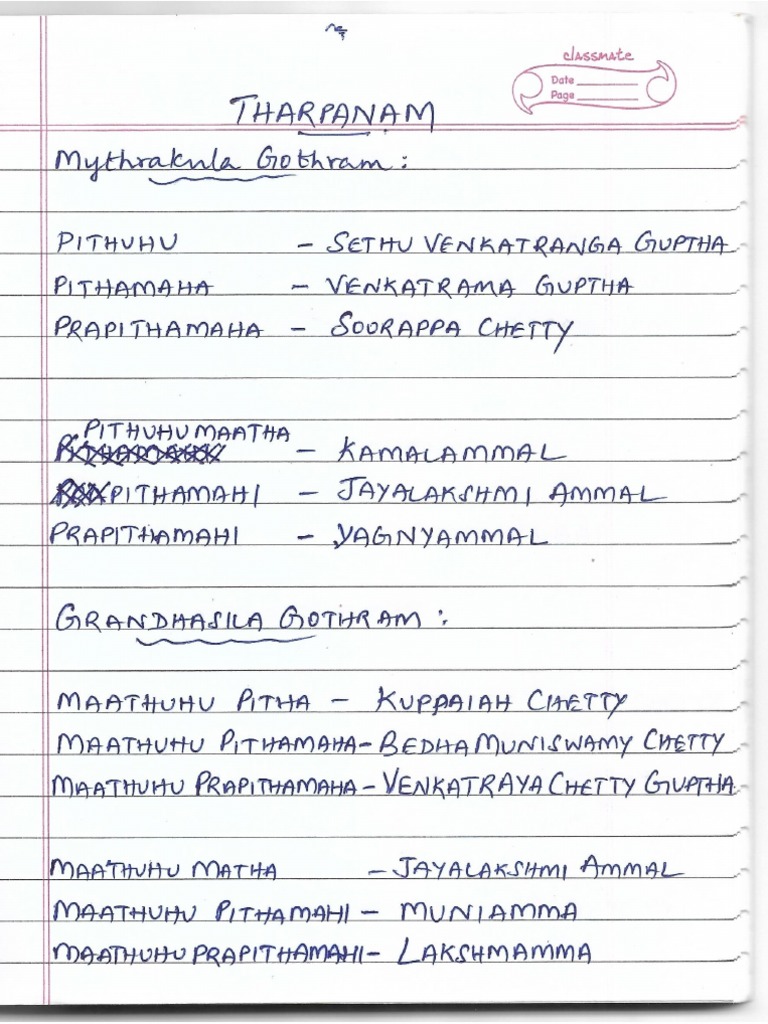 classmate
Date
Page
THARPANAM
Mythrakula Gothram :
PITHUHU - SETHU VENKATRANGA GUPTHA
PITHAMAHA - VENKATRAMA GUPTHA
PRAPITHAMAHA - SOORAPPA CHETTY
PITHUHU MAATHA - KAMALAMMAL
PITHAMAHI - JAYALAKSHMI AMMAL
PRAPITHAMAHI - YAGNYAMMAL
GRANDHASILA GOTHRAM :
MAATHUHU PITHA - KUPPAIAH CHETTY
MAATHUHU PITHAMAHA - BEDHA MUNISWAMY CHETTY
MAATHUHU PRAPITHAMAHA - VENKATRAYA CHETTY GUPTHA
MAATHUHU MATHA - JAYALAKSHMI AMMAL
MAATHUHU PITHAMAHI - MUNIAMMA
MAATHUHU PRAPITHAMAHI - LAKSHMAMMA